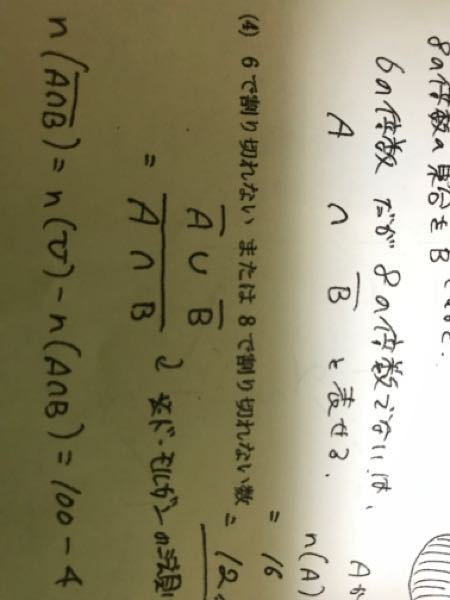 8の倍数の集合をB
6の倍数だが8の倍数でないは、
A ∩ B̅ と表せる.
Aか
n(A)
= 16
(4) 6で割り切れない または 8で割り切れない数
= 12
A̅ ∪ B̅
= \overline{A ∩ B}
ド・モルガンの法則
n(\overline{A∩B}) = n(U) - n(A∩B) = 100 - 4